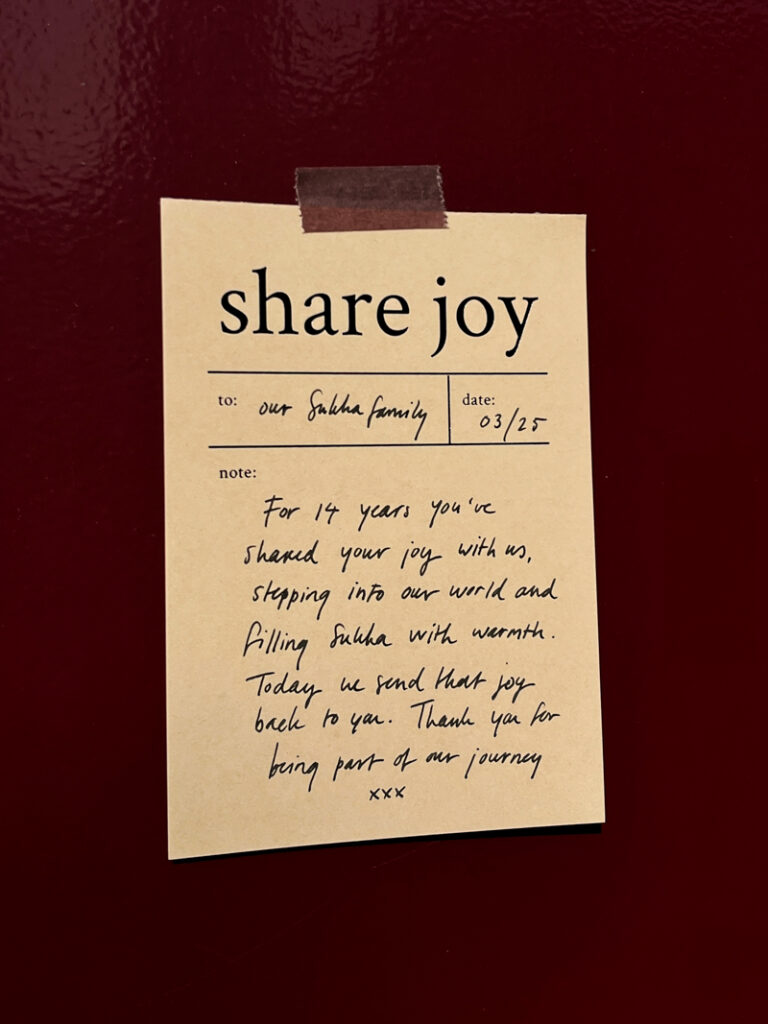 share joy
to: our Sukha family
date: 03/25
note:
For 14 years you've
shared your joy with us,
stepping into our world and
filling Sukha with warmth.
Today we send that joy
back to you. Thank you for
being part of our journey
xxx